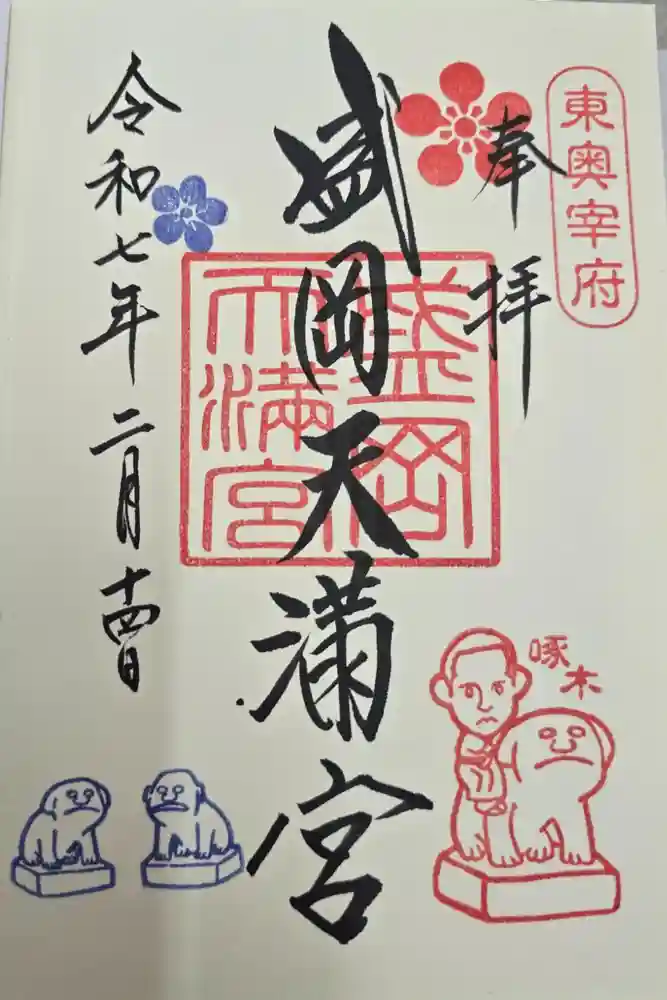 東奥宰府
奉拝
盛岡天満宮
盛岡
天満宮
令和七年二月十四日
啄木